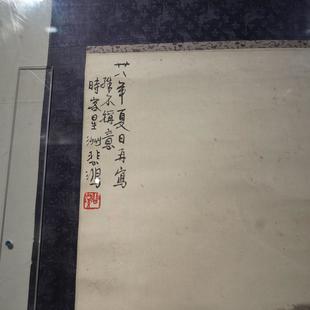 廿八年夏日再寫
殊不稱意
時客星洲悲鴻